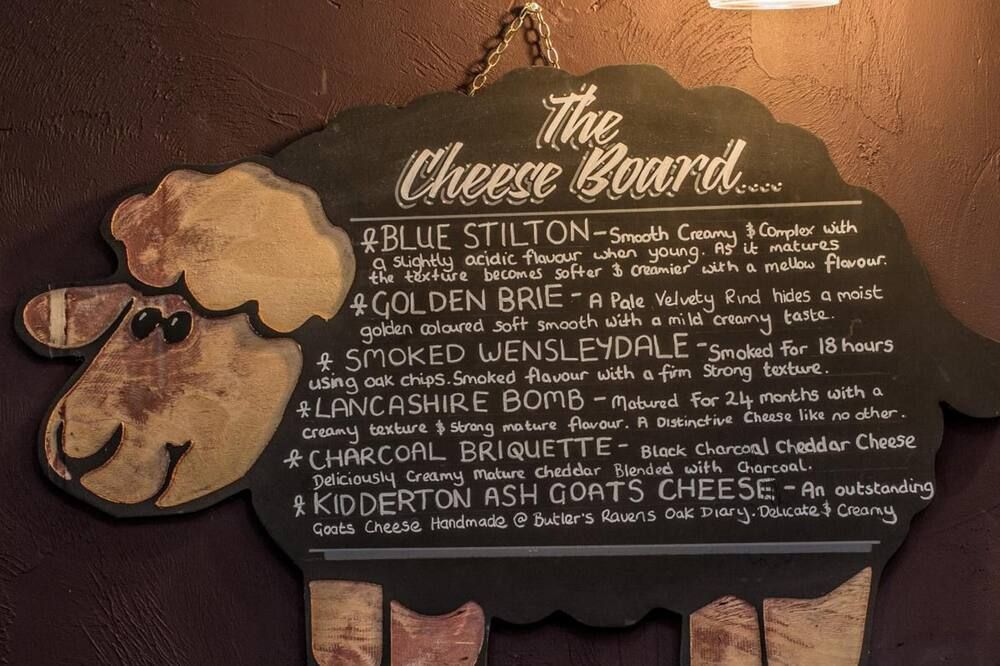 The
Cheese Board....
BLUE STILTON - Smooth Creamy & Complex with
a slightly acidic flavour when young. As it matures
the texture becomes softer & creamier with a mellow flavour.
GOLDEN BRIE - A Pale Velvety Rind hides a moist
golden coloured soft smooth with a mild creamy taste.
SMOKED WENSLEYDALE - Smoked for 18 hours
using oak chips. Smoked flavour with a firm strong texture.
LANCASHIRE BOMB - Matured for 24 months with a
creamy texture & strong mature flavour. A Distinctive Cheese like no other.
CHARCOAL BRIQUETTE - Black Charcoal Cheddar Cheese
Deliciously Creamy Mature cheddar Blended with Charcoal.
KIDDERTON ASH GOATS CHEESE - An outstanding
Goats Cheese Handmade @ Butler's Ravens Oak Diary. Delicate & Creamy